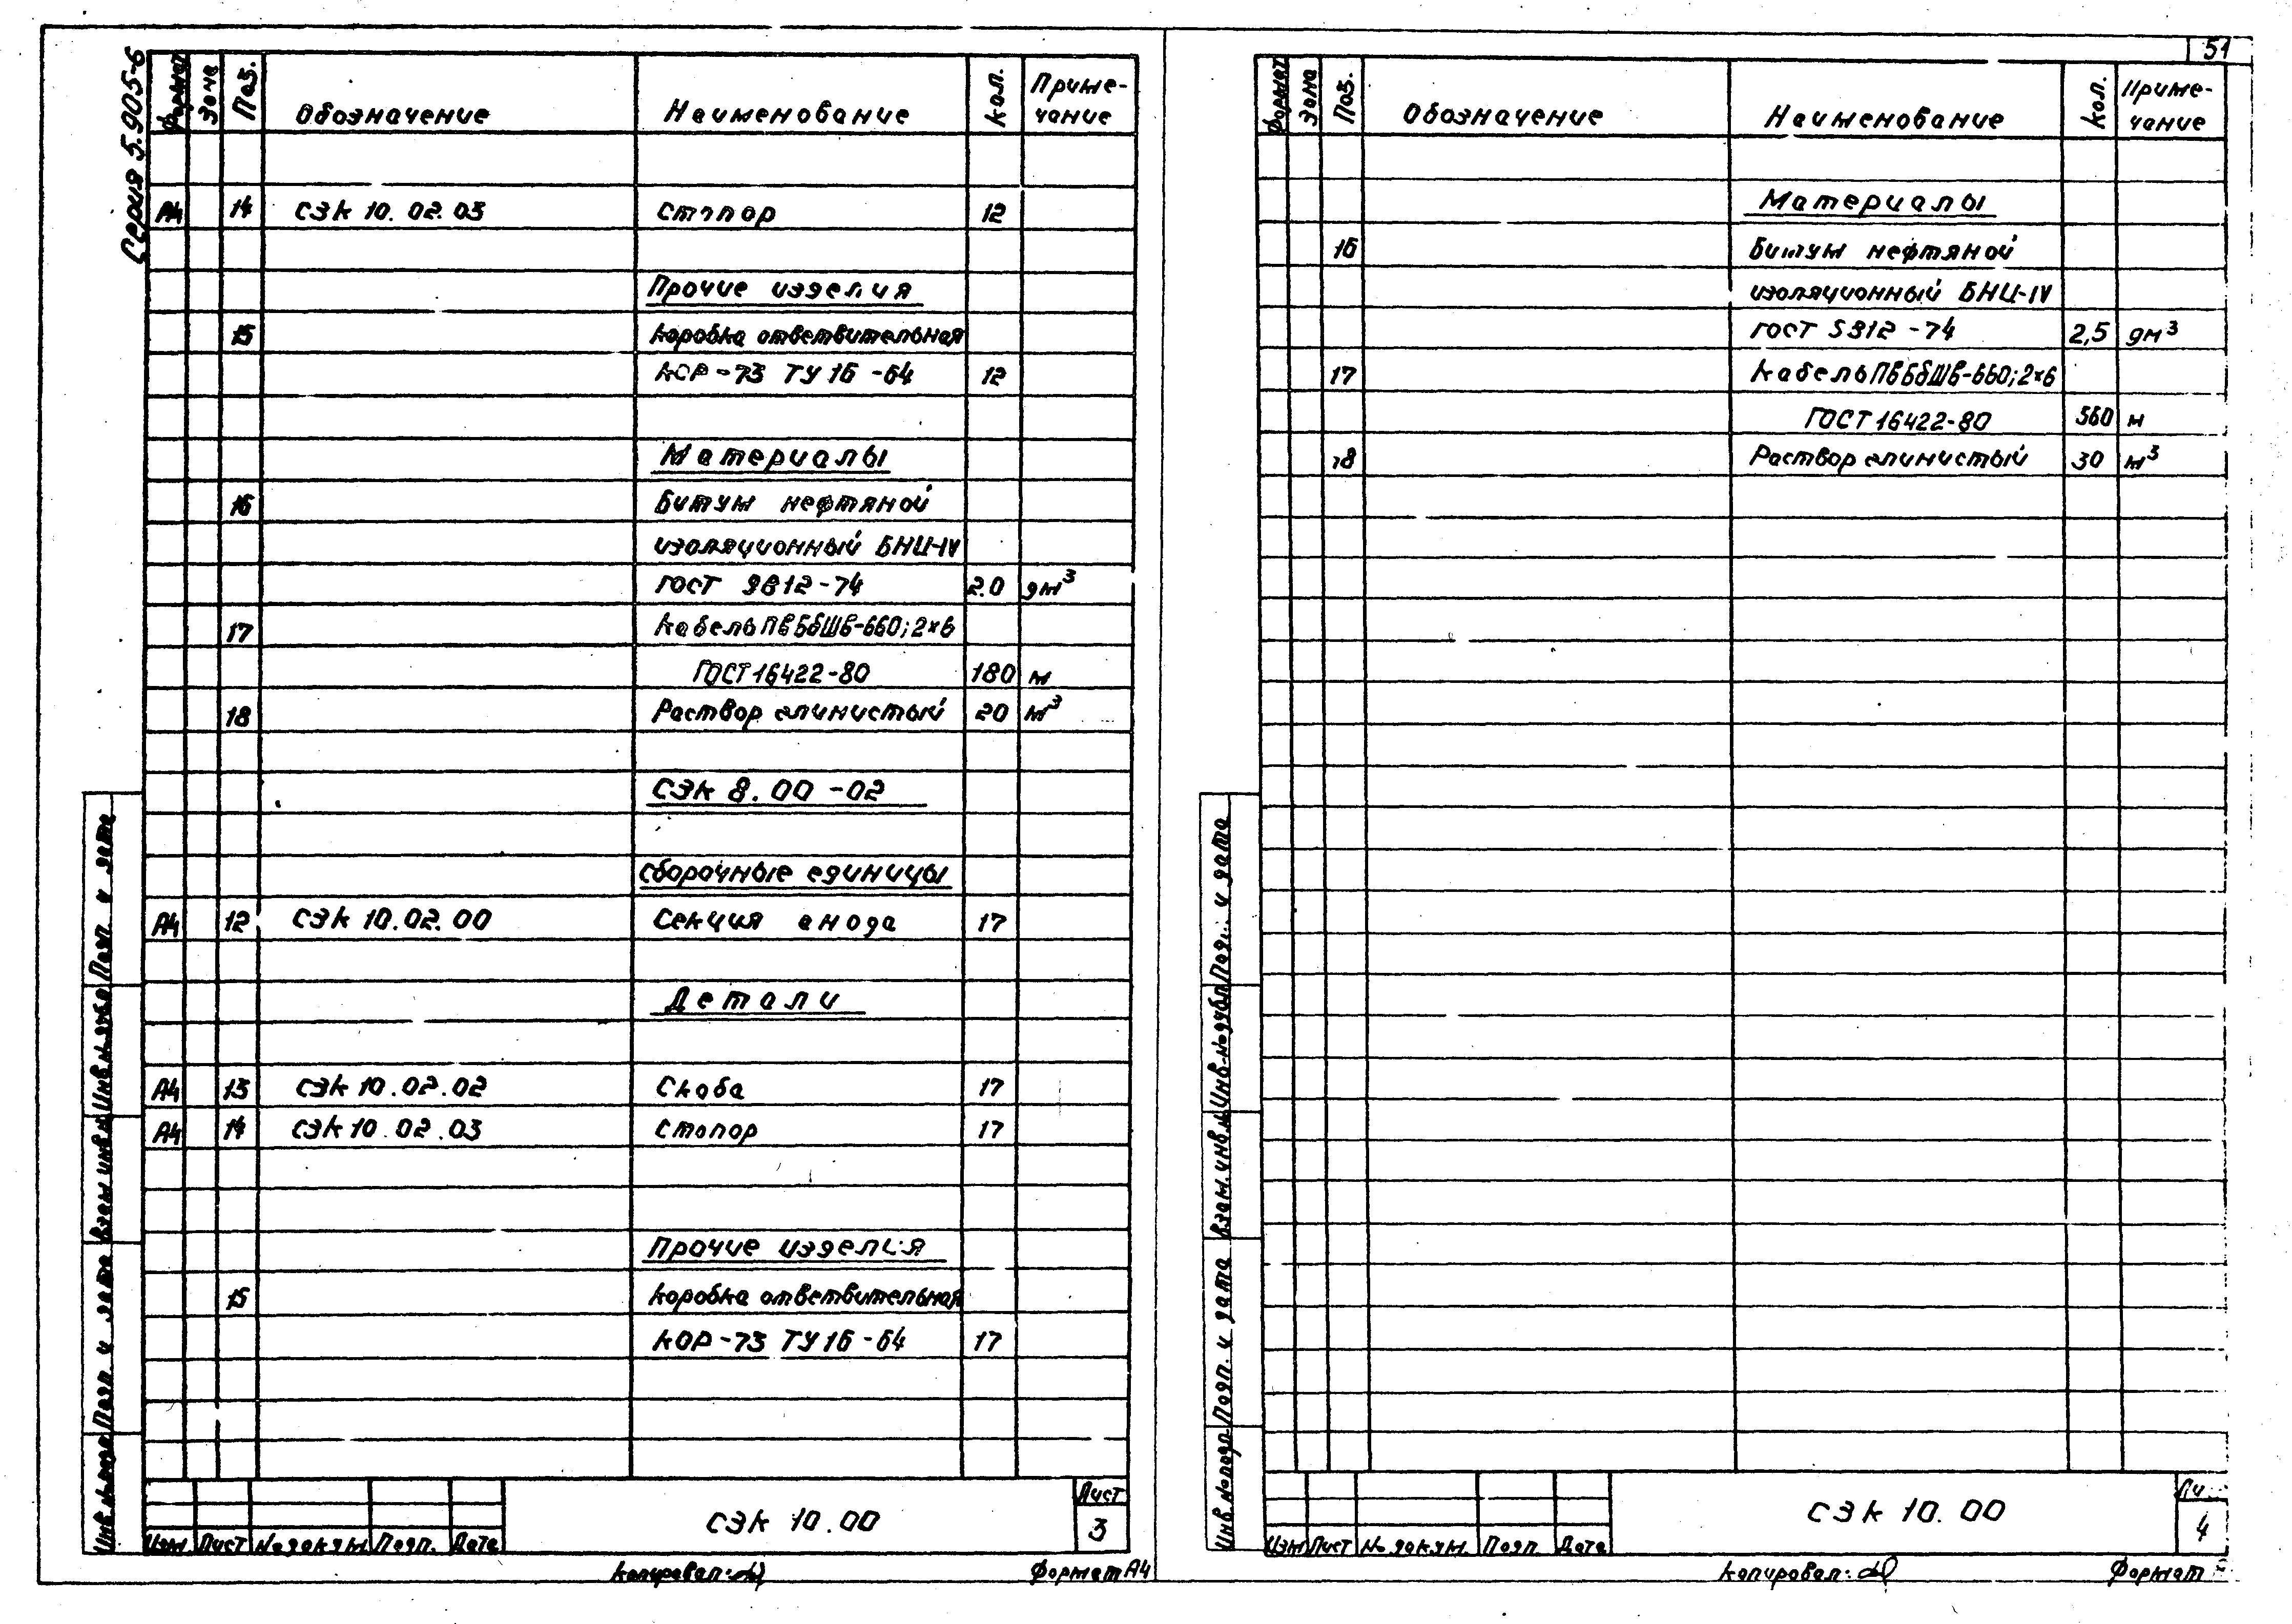 Серия 5.905-6
Формат Зона Поз. Обозначение Наименование Кол. Приме-
чание
А4 14 СЭК 10.02.03 Стопор 12
Прочие изделия
15 Коробка ответвительная
КОР-73 ТУ 16-64 12
Материалы
16 Битум нефтяной
изоляционный БНИ-IV
ГОСТ 9812-74 2.0 дм³
17 Кабель ПвБбШв-660; 2×6
ГОСТ 16422-80 180 м
18 Раствор глинистый 20 м³
СЭК 8.00-02
Сборочные единицы
А4 12 СЭК 10.02.00 Секция анода 17
Детали
А4 13 СЭК 10.02.02 Скоба 17
А4 14 СЭК 10.02.03 Стопор 17
Прочие изделия
15 Коробка ответвительная
КОР-73 ТУ 16-64 17
Инв. № подл. Подп. и дата Взам. инв. № Инв. № дубл. Подп. и дата
Изм. Лист № докум. Подп. Дата
СЭК 10.00
Лист
3
Копировал:
Формат А4
51
Формат Зона Поз. Обозначение Наименование Кол. Приме-
чание
Материалы
16 Битум нефтяной
изоляционный БНИ-IV
ГОСТ 9812-74 2,5 дм³
17 Кабель ПвБбШв-660; 2×6
ГОСТ 16422-80 м
18 Раствор глинистый 30 м³
Инв. № подл. Подп. и дата Взам. инв. № Инв. № дубл. Подп. и дата
Изм. Лист № докум. Подп. Дата
СЭК 10.00
4
Копировал:
Формат